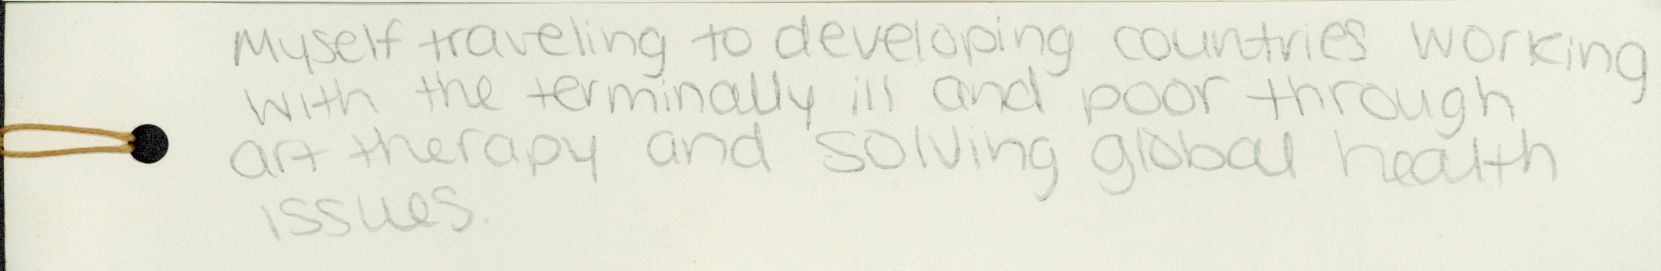 Myself traveling to developing countries working
with the terminally ill and poor through
art therapy and solving global health
issues.